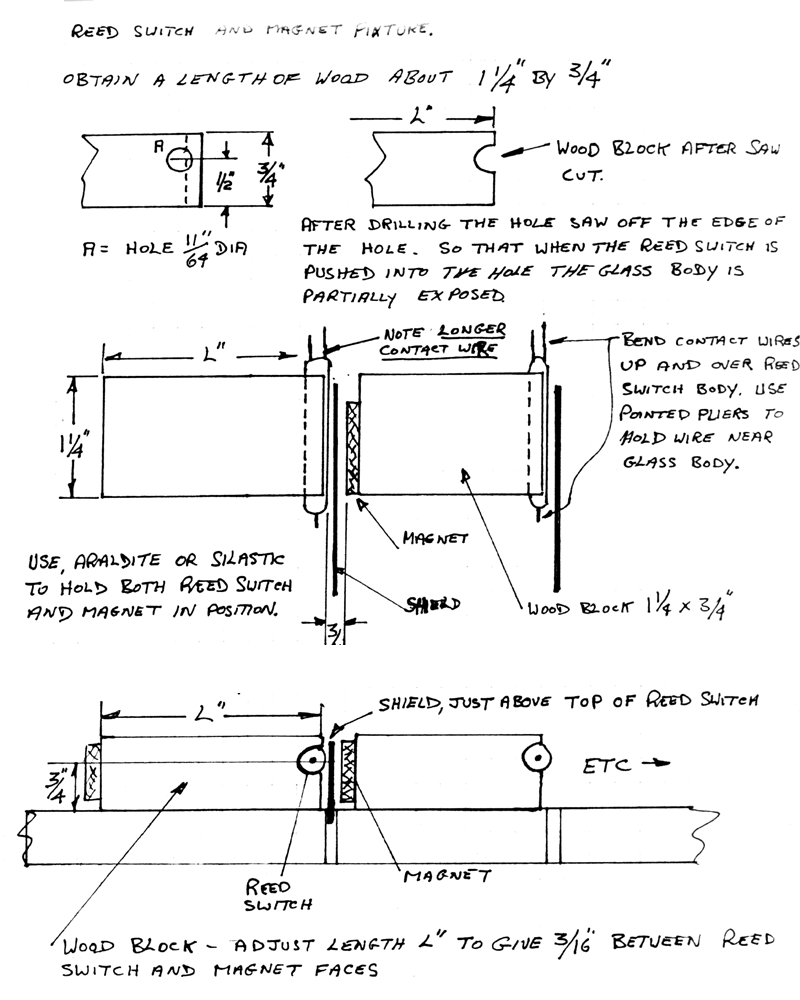 REED SWITCH AND MAGNET FIXTURE.
OBTAIN A LENGTH OF WOOD ABOUT 1 1/4" BY 3/4"
L"
A
1/2"
3/4"
WOOD BLOCK AFTER SAW
CUT.
A = HOLE 11"/64 DIA
AFTER DRILLING THE HOLE SAW OFF THE EDGE OF
THE HOLE. SO THAT WHEN THE REED SWITCH IS
PUSHED INTO THE HOLE THE GLASS BODY IS
PARTIALLY EXPOSED
L"
NOTE LONGER
CONTACT WIRE
BEND CONTACT WIRES
UP AND OVER REED
SWITCH BODY. USE
POINTED PLIERS TO
HOLD WIRE NEAR
GLASS BODY.
1 1/4"
MAGNET
USE, ARALDITE OR SILASTIC
TO HOLD BOTH REED SWITCH
AND MAGNET IN POSITION.
SHIELD
WOOD BLOCK 1 1/4 x 3/4"
3/
L"
SHIELD, JUST ABOVE TOP OF REED SWITCH
3/4"
ETC
REED
SWITCH
MAGNET
WOOD BLOCK - ADJUST LENGTH L" TO GIVE 3/16" BETWEEN REED
SWITCH AND MAGNET FACES